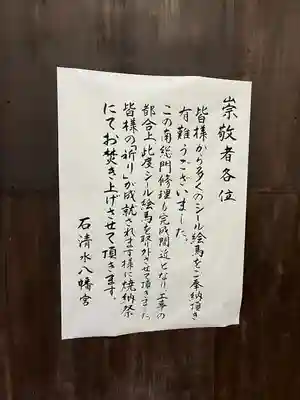 崇敬者各位
皆様から多くのシール絵馬をご奉納頂き
有難うございました。
この南総門修理も完成間近となり、工事の
都合上、此度シール絵馬を取外させて頂きました
皆様の「祈り」が成就されます様に焼納祭
にてお焚き上げさせて頂きます。
石清水八幡宮